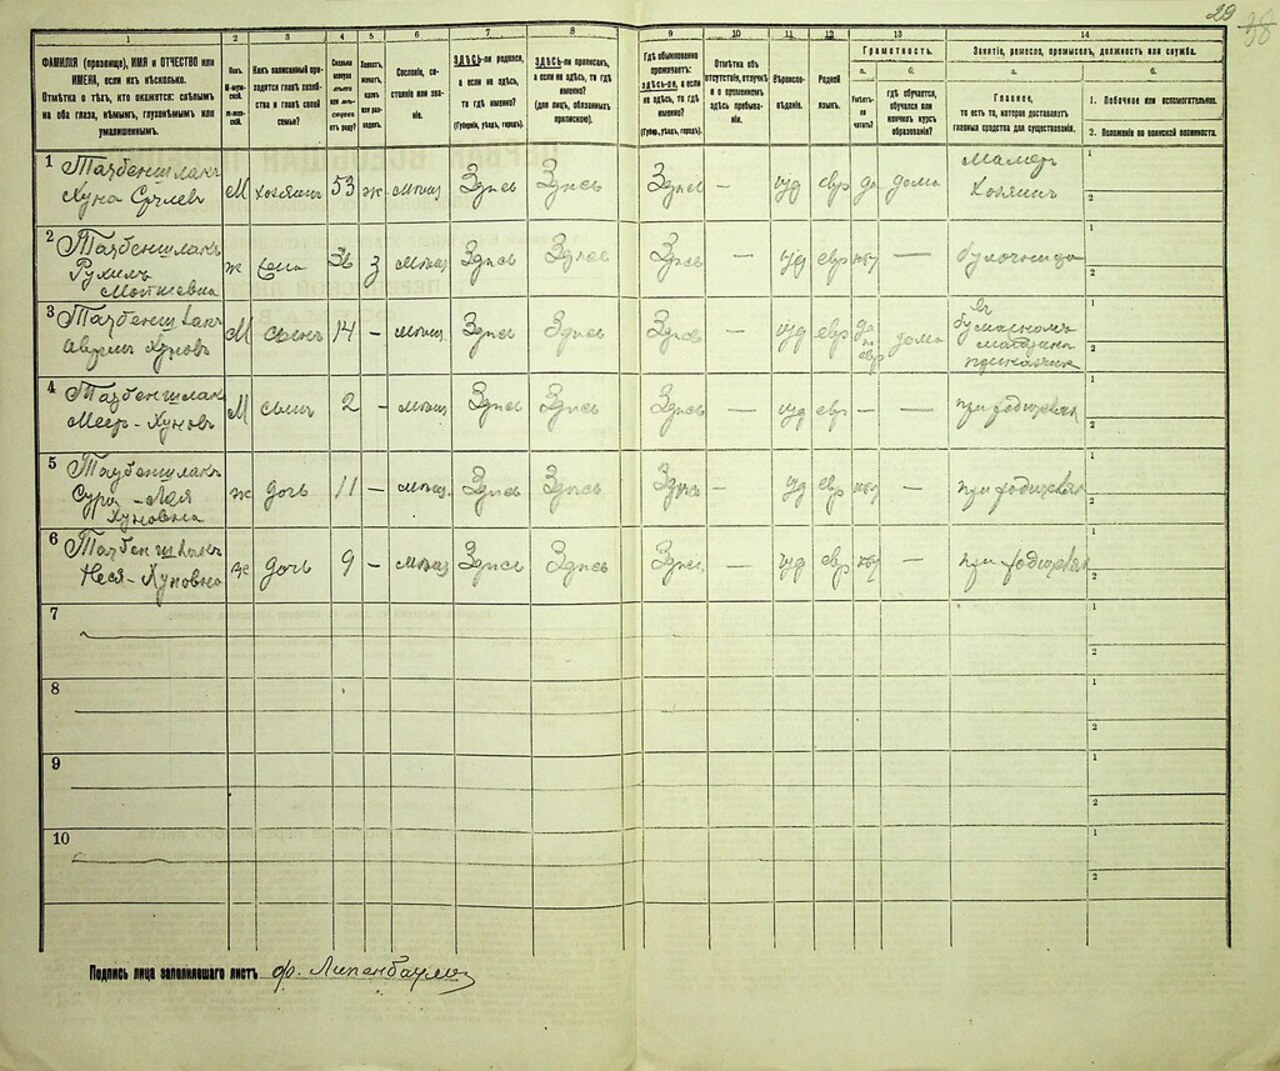 29
38
1 2 3 4 5 6 7 8 9 10 11 12 13 14
ФАМИЛІЯ (прозвище), ИМЯ и ОТЧЕСТВО или
ИМЕНА, если ихъ нѣсколько.
Отмѣтка о тѣхъ, кто окажется: слѣпымъ
на оба глаза, нѣмымъ, глухонѣмымъ или
умалишеннымъ.
Полъ.
М-муж-
ской.
Ж-жен-
скій.
Какъ записанный при-
ходится главѣ хозяй-
ства и главѣ своей
семьи?
Сословіе, со-
стояніе или зва-
ніе.
ЗДѢСЬ-ли родился,
а если не здѣсь,
то гдѣ именно?
(Губернія, уѣздъ, городъ).
ЗДѢСЬ-ли приписанъ,
а если не здѣсь, то гдѣ
именно?
(для лицъ, обязанныхъ
припискою).
Гдѣ обыкновенно
проживаетъ:
здѣсь-ли, а если
не здѣсь, то гдѣ
именно?
(Губер., уѣздъ, городъ).
Отмѣтка объ
отсутствіи, отлучкѣ
и о временномъ
здѣсь пребыва-
ніи.
Вѣроиспо-
вѣданіе.
Родной
языкъ.
Грамотность.
а. б.
Умѣетъ-
ли
читать?
гдѣ обучается,
обучался или
кончилъ курсъ
образованія?
Занятіе, ремесло, промыселъ, должность или служба.
а. б.
Главное,
то есть то, которое доставляетъ
главныя средства для существованія.
1. Побочное или вспомогательное.
2. Положеніе по воинской повинности.
1 Таубеншлакъ
Хуна Срулевъ М хозяинъ 53 ж мѣщ Здѣсь Здѣсь Здѣсь — іуд евр да дома
Хозяинъ
1
2
2 Таубеншлакъ
Рухля
Мошковна ж жена 36 з мѣщ Здѣсь Здѣсь Здѣсь — іуд евр нѣт —
1
2
3 Таубеншлакъ
Хуновъ М сынъ 14 - мѣщ Здѣсь Здѣсь Здѣсь — іуд евр да по евр дома
Въ
магазинѣ
прикащик
1
2
4 Таубеншлак
Меер - Хуновъ М сынъ 2 - мѣщ Здѣсь Здѣсь Здѣсь — іуд евр — — при родителях
1
2
5 Таубеншлакъ
Сура - Лея
Хуновна ж дочь 11 — мѣщ Здѣсь Здѣсь Здѣсь — іуд евр нѣт — при родителях
1
2
6 Таубеншлакъ
Неся - Хуновна ж дочь 9 — мѣщ Здѣсь Здѣсь Здѣсь — іуд евр нѣт — при родителях
1
2
7
1
2
8
1
2
9
1
2
10
1
2
Подпись лица заполнявшаго листъ ф. Липенбаумъ